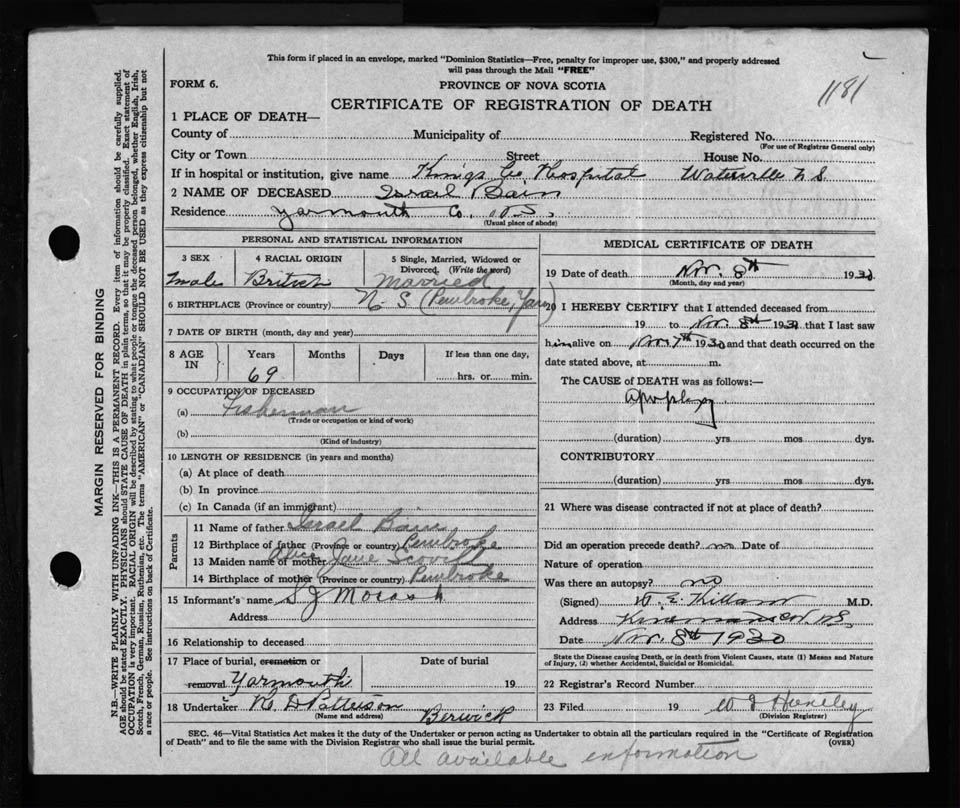 This form if placed in an envelope, marked "Dominion Statistics—Free, penalty for improper use, $300," and properly addressed
will pass through the Mail "FREE"
1181
FORM 6.
PROVINCE OF NOVA SCOTIA
CERTIFICATE OF REGISTRATION OF DEATH
1 PLACE OF DEATH—
County of Municipality of Registered No.
(For use of Registrar General only)
City or Town Street House No.
If in hospital or institution, give name Kings Co Hospital Waterville N S
2 NAME OF DECEASED Israel Bain
Residence Yarmouth Co. N.S.
(Usual place of abode)
PERSONAL AND STATISTICAL INFORMATION
3 SEX
male
4 RACIAL ORIGIN
British
5 Single, Married, Widowed or
Divorced. (Write the word)
Married
6 BIRTHPLACE (Province or country) N. S. (Pembroke, Yar)
7 DATE OF BIRTH (month, day and year)
8 AGE IN
Years Months Days If less than one day,
69 hrs. or min.
9 OCCUPATION OF DECEASED
(a) Fisherman
(Trade or occupation or kind of work)
(b)
(Kind of industry)
10 LENGTH OF RESIDENCE (in years and months)
(a) At place of death
(b) In province
(c) In Canada (if an immigrant)
Parents
11 Name of father Israel Bain
12 Birthplace of father (Province or country) Pembroke
13 Maiden name of mother Jane
14 Birthplace of mother (Province or country) Pembroke
15 Informant's name S J Morash
Address
16 Relationship to deceased
17 Place of burial, cremation or Date of burial
removal Yarmouth 19
18 Undertaker N. D Patterson
(Name and address) Berwick
MEDICAL CERTIFICATE OF DEATH
19 Date of death Nov. 8th 1930
(Month, day and year)
20 I HEREBY CERTIFY that I attended deceased from
19 to Nov. 8th 1930 that I last saw
him alive on Nov 7th 1930 and that death occurred on the
date stated above, at m.
The CAUSE of DEATH was as follows:—
Apoplexy
(duration) yrs mos dys.
CONTRIBUTORY
(duration) yrs. mos. dys.
21 Where was disease contracted if not at place of death?
Did an operation precede death? no Date of
Nature of operation
Was there an autopsy? no
(Signed) M.D.
Address N.S.
Date Nov. 8th 1930
State the Disease causing Death, or in death from Violent Causes, state (1) Means and Nature
of Injury, (2) whether Accidental, Suicidal or Homicidal.
22 Registrar's Record Number
23 Filed 19
(Division Registrar)
SEC. 46—Vital Statistics Act makes it the duty of the Undertaker or person acting as Undertaker to obtain all the particulars required in the "Certificate of Registration
of Death" and to file the same with the Division Registrar who shall issue the burial permit. (OVER)
All available information
MARGIN RESERVED FOR BINDING
N.B.—WRITE PLAINLY WITH UNFADING INK—THIS IS A PERMANENT RECORD. Every item of information should be carefully supplied.
AGE should be stated EXACTLY. PHYSICIANS should STATE CAUSE OF DEATH in plain terms, so that it may be properly classified. Exact statement of
OCCUPATION is very important. RACIAL ORIGIN will be described by stating to what people or tongue the deceased person belonged, whether English, Irish,
Scotch, French, German, Russian, Ruthenian, etc. The terms "AMERICAN" or "CANADIAN" SHOULD NOT BE USED as they express citizenship but not
a race or people. See instructions on back of Certificate.